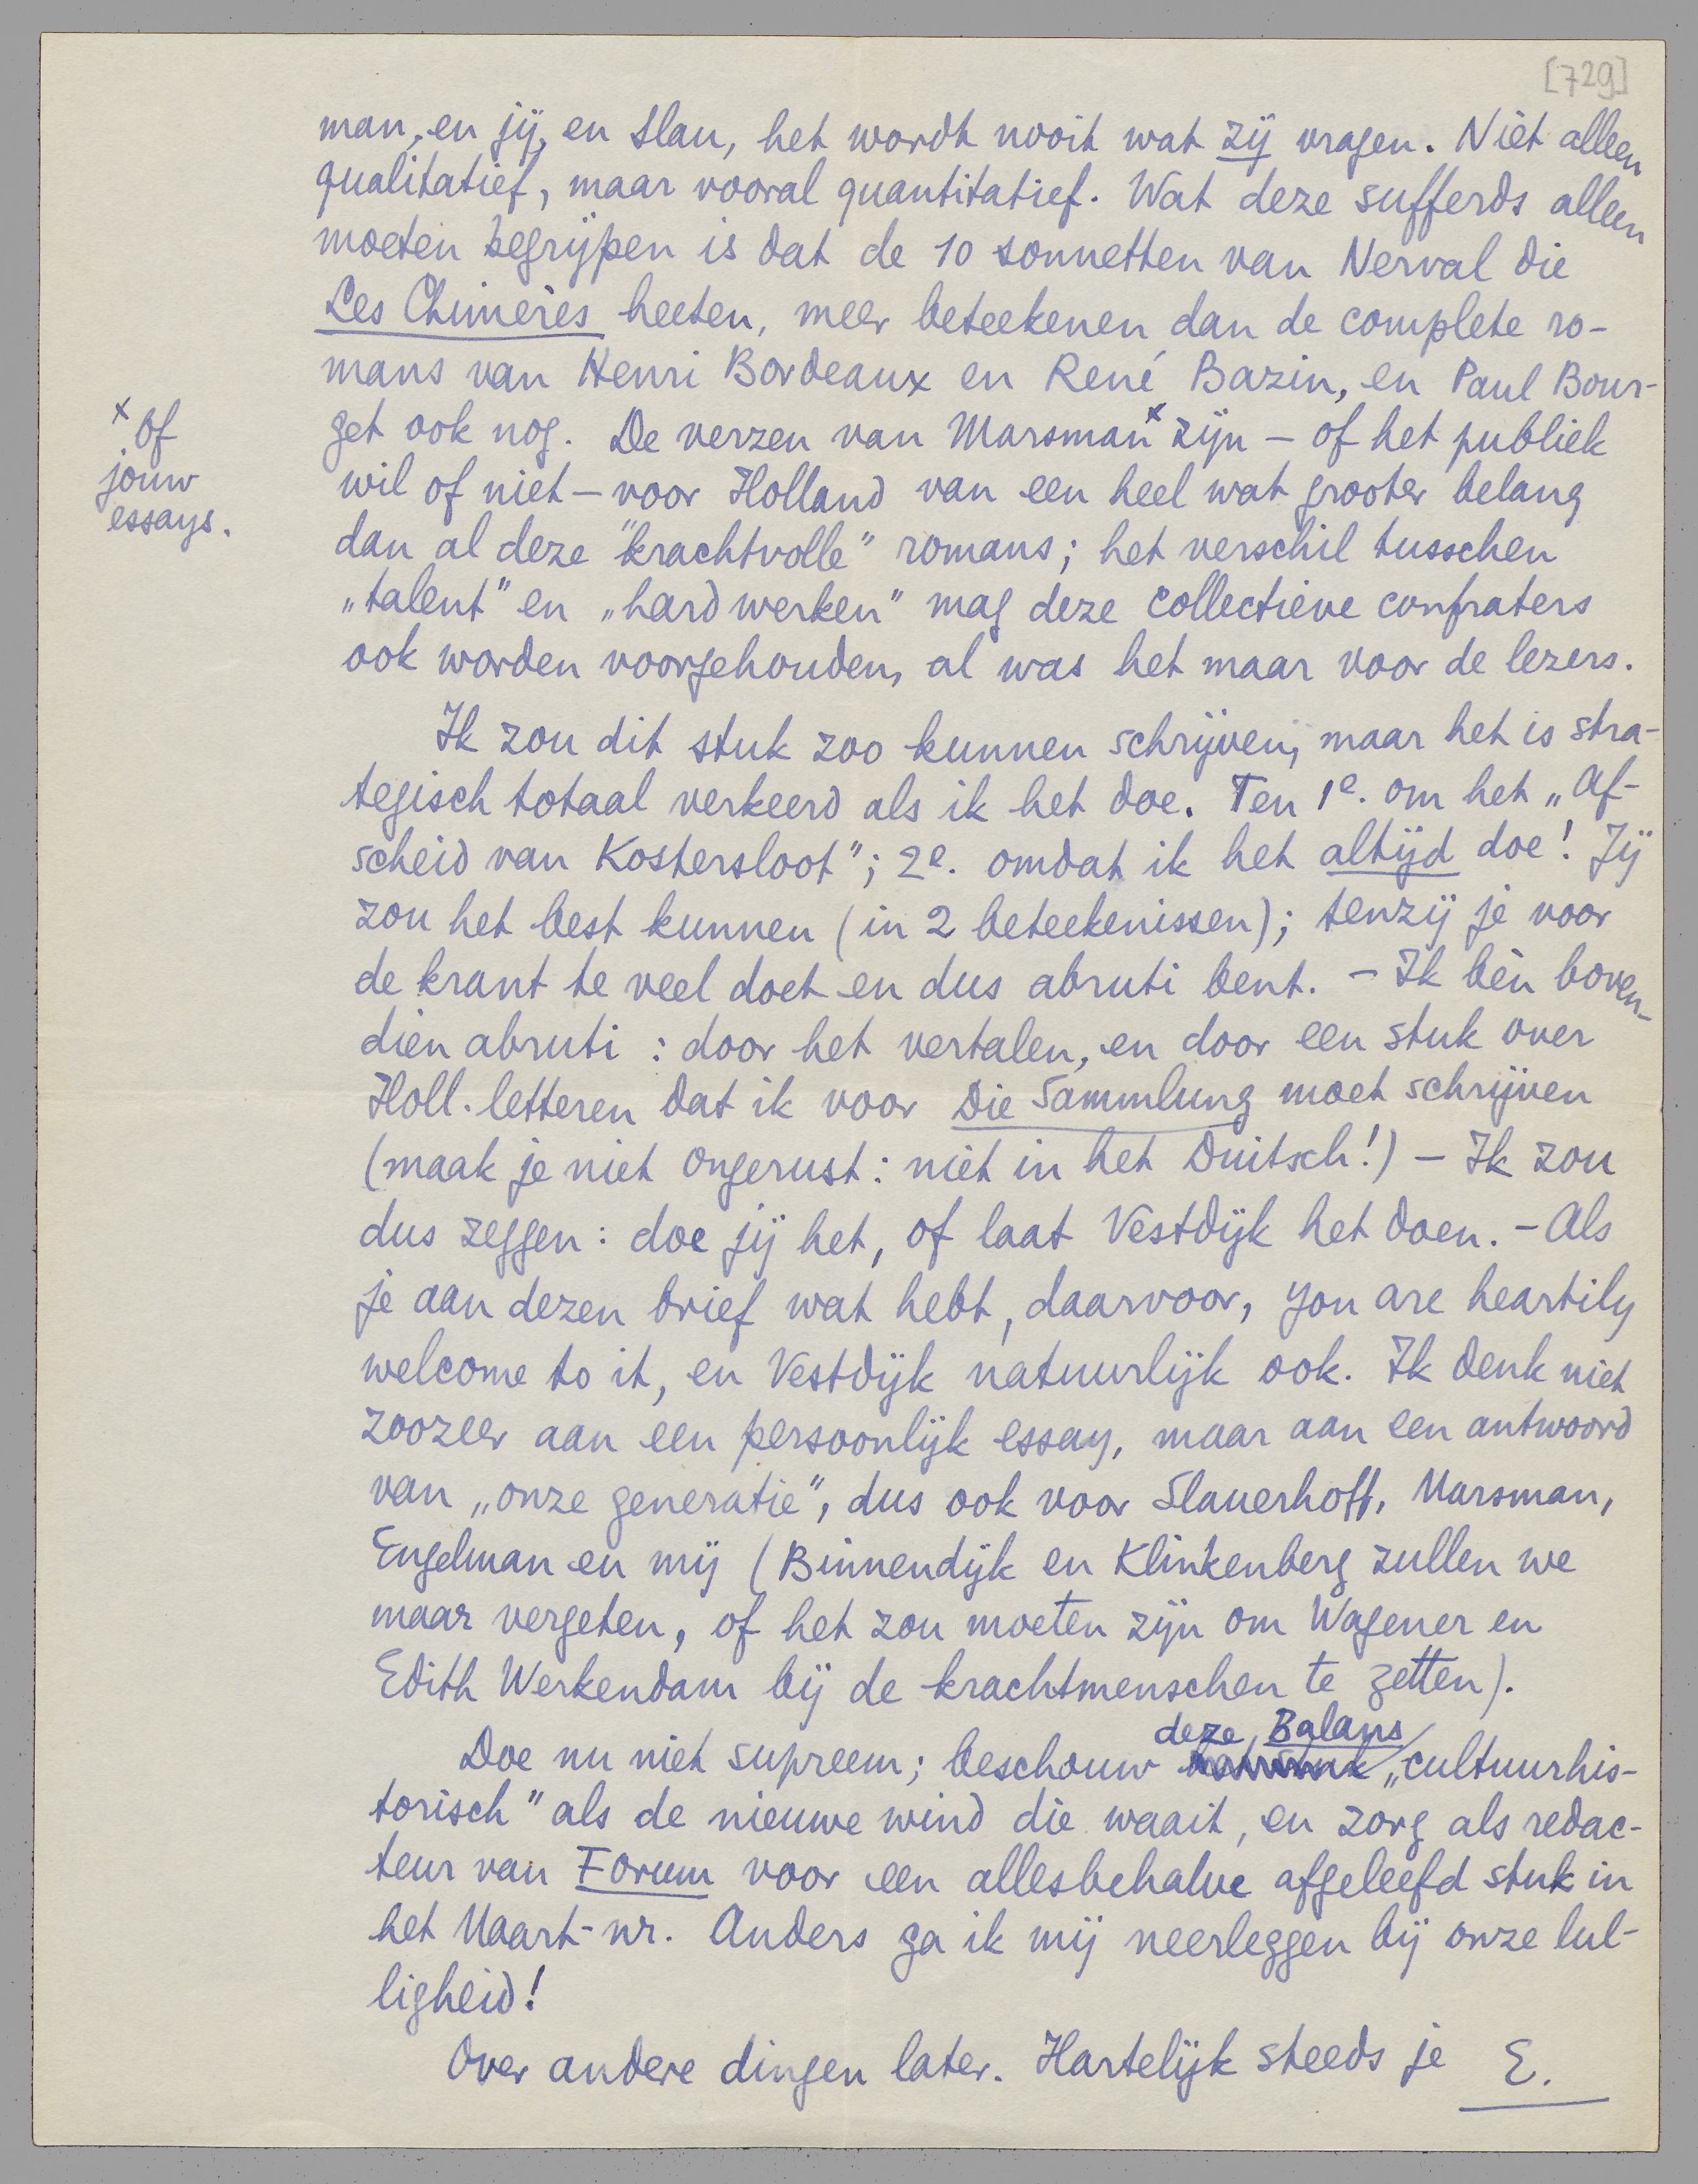 [729]
man, en jij, en Slau, het wordt nooit wat zij vragen. Niet alleen
qualitatief, maar vooral quantitatief. Wat deze sufferds alleen
moeten begrijpen is dat de 10 sonnetten van Nerval die
Les Chimères heeten, meer beteekenen dan de complete ro-
mans van Henri Bordeaux en René Bazin, en Paul Bour-
get ook nog. De verzen van Marsman x zijn – of het publiek
wil of niet – voor Holland van een heel wat grooter belang
dan al deze "krachtvolle" romans; het verschil tusschen
„talent" en „hard werken" mag deze collectieve confraters
ook worden voorgehouden, al was het maar voor de lezers.
x Of
jouw
essays.
Ik zou dit stuk zoo kunnen schrijven, maar het is stra-
tegisch totaal verkeerd als ik het doe. Ten 1e. om het „Af-
scheid van Kostersloot"; 2e. omdat ik het altijd doe! Jij
zou het best kunnen (in 2 beteekenissen); tenzij je voor
de krant te veel doet en dus abruti bent. – Ik bèn boven-
dien abruti: door het vertalen, en door een stuk over
Holl. letteren dat ik voor Die Sammlung moet schrijven
(maak je niet ongerust: niet in het Duitsch!) – Ik zou
dus zeggen: doe jij het, of laat Vestdijk het doen. – Als
je aan dezen brief wat hebt, daarvoor, you are heartily
welcome to it, en Vestdijk natuurlijk ook. Ik denk niet
zoozeer aan een persoonlijk essay, maar aan een antwoord
van „onze generatie", dus ook voor Slauerhoff, Marsman,
Engelman en mij (Binnendijk en Klinkenberg zullen we
maar vergeten, of het zou moeten zijn om Wagener en
Edith Werkendam bij de krachtmenschen te zetten).
Doe nu niet supreem; beschouw deze Balans „cultuurhis-
torisch" als de nieuwe wind die waait, en zorg als redac-
teur van Forum voor een allesbehalve afgeleefd stuk in
het Maart-nr. Anders ga ik mij neerleggen bij onze lul-
ligheid!
Over andere dingen later. Hartelijk steeds je E.